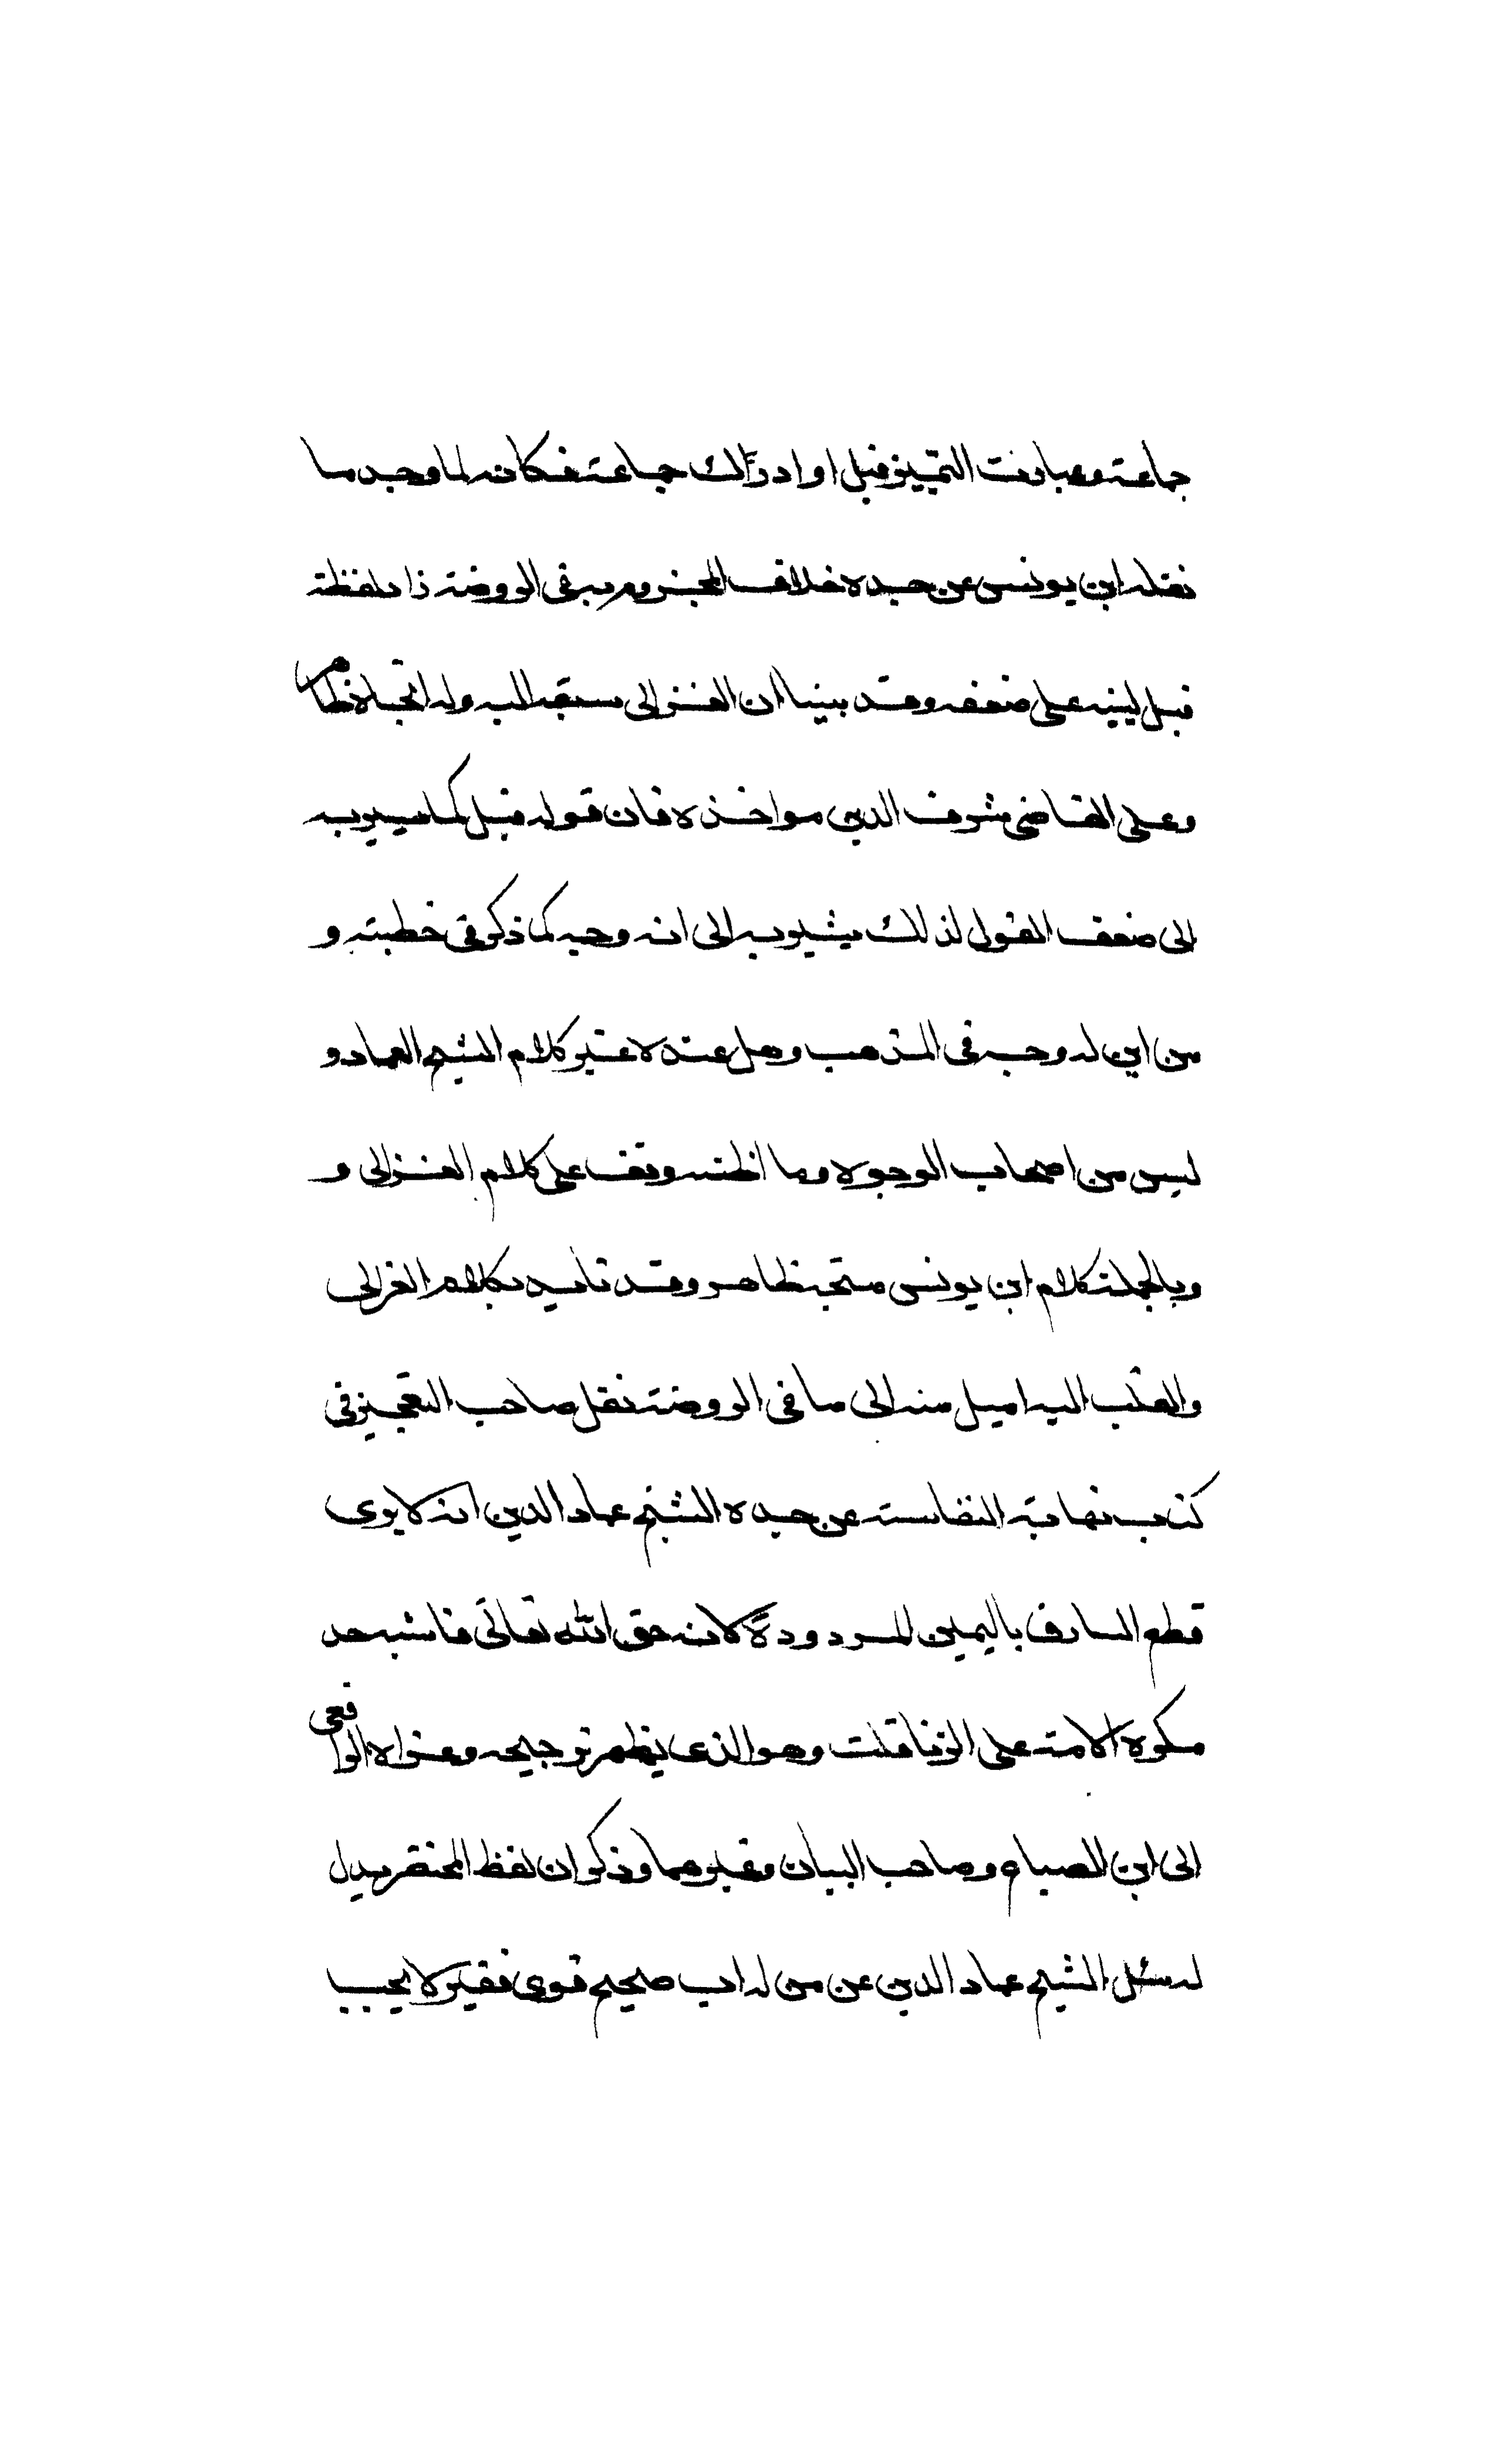 جماعة وعبارفت التمييز قبل او ادراك جماعة فكانه لما وجد ما
نقله ابن يونس عن جده خلاف المجزوم به في الروضة زاد لفظة
قبل لينبه على ضعفه وقد بينا ان الغزالي سبقه اليه وله اتجاه ظاهر
وعلى القاضي شرف الدين مواخذة فان قوله قبل كما يسير به
الى ضعف القول لذلك يشير به الى انه وجه كما ذكر في خطبته و
من اين له وجه في المذهب وهل عنده غير كلام الشيخ العماد و
ليس من اصحاب الوجوه وما اظنه وقف على كلام الغزالي و
وبالجملة كلام ابن يونس متجه ظاهر وقد تايد بكلام الغزالي
والقلب اليه اميل منه الى ما في الروضة نقل صاحب التعجيز في
كتاب نهاية النفاسة عن جده الشيخ عماد الدين انه لا يرى
قطع السارق باليمين المردودة لانه حق الله تعالى فاشبه حد
مكره الامة على الزنا قلت وهو الذي يظهر ترجيحه وعزاه الرافعي
الى ابن الصباغ وصاحب البيان وغيرهما وذكر ان لفظ المختصر يدل
له سئل الشيخ عماد الدين عن من له اب صحيح قوي فقير لا يجب